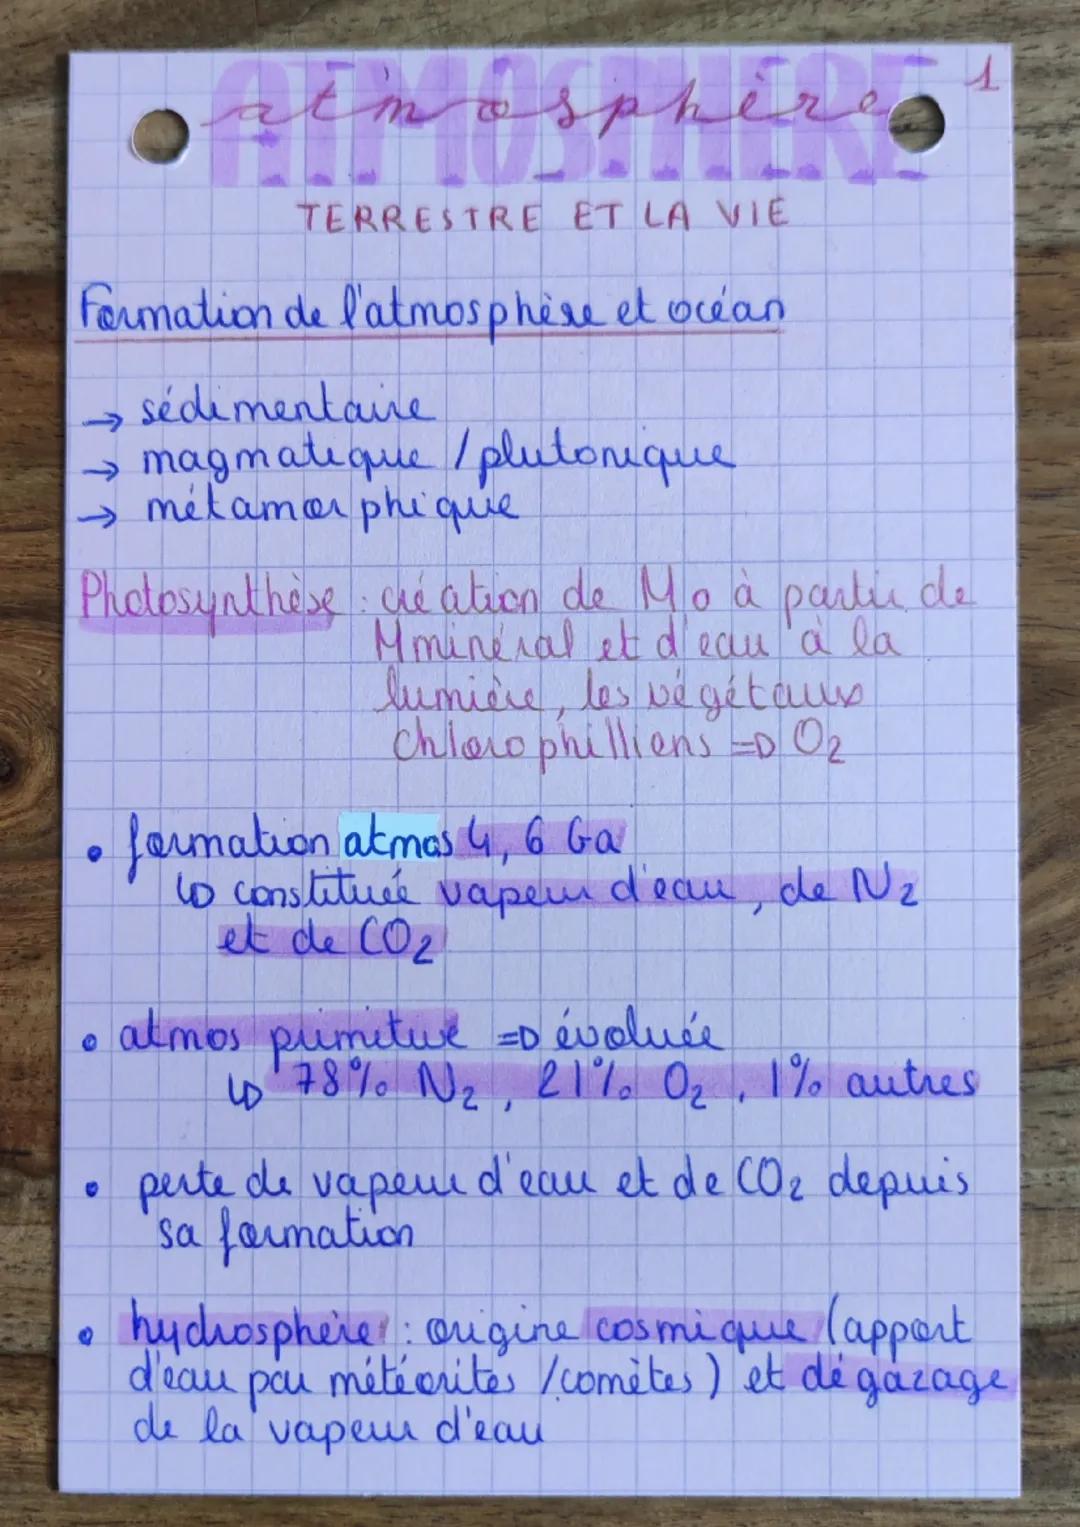 1
ATMOSPHÈRE
atmosphère
TERRESTRE ET LA VIE
Formation de l'atmosphère et océan
→ sédimentaire
→ magmatique / plutonique
→ métamorphique
Photosynthèse : création de Mo à partir de
Mminéral et d'eau à la
lumière, les végétaux
chlorophilliens => O2
• formation atmos 4, 6 Ga
↳ constituée vapeur d'eau, de N2
et de CO2
• atmos primitive => évoluée
↳ 78% N2, 21% O2, 1% autres
• perte de vapeur d'eau et de CO2 depuis
sa formation
• hydrosphère : origine cosmique (apport
d'eau par météorites / comètes) et dégazage
de la vapeur d'eau